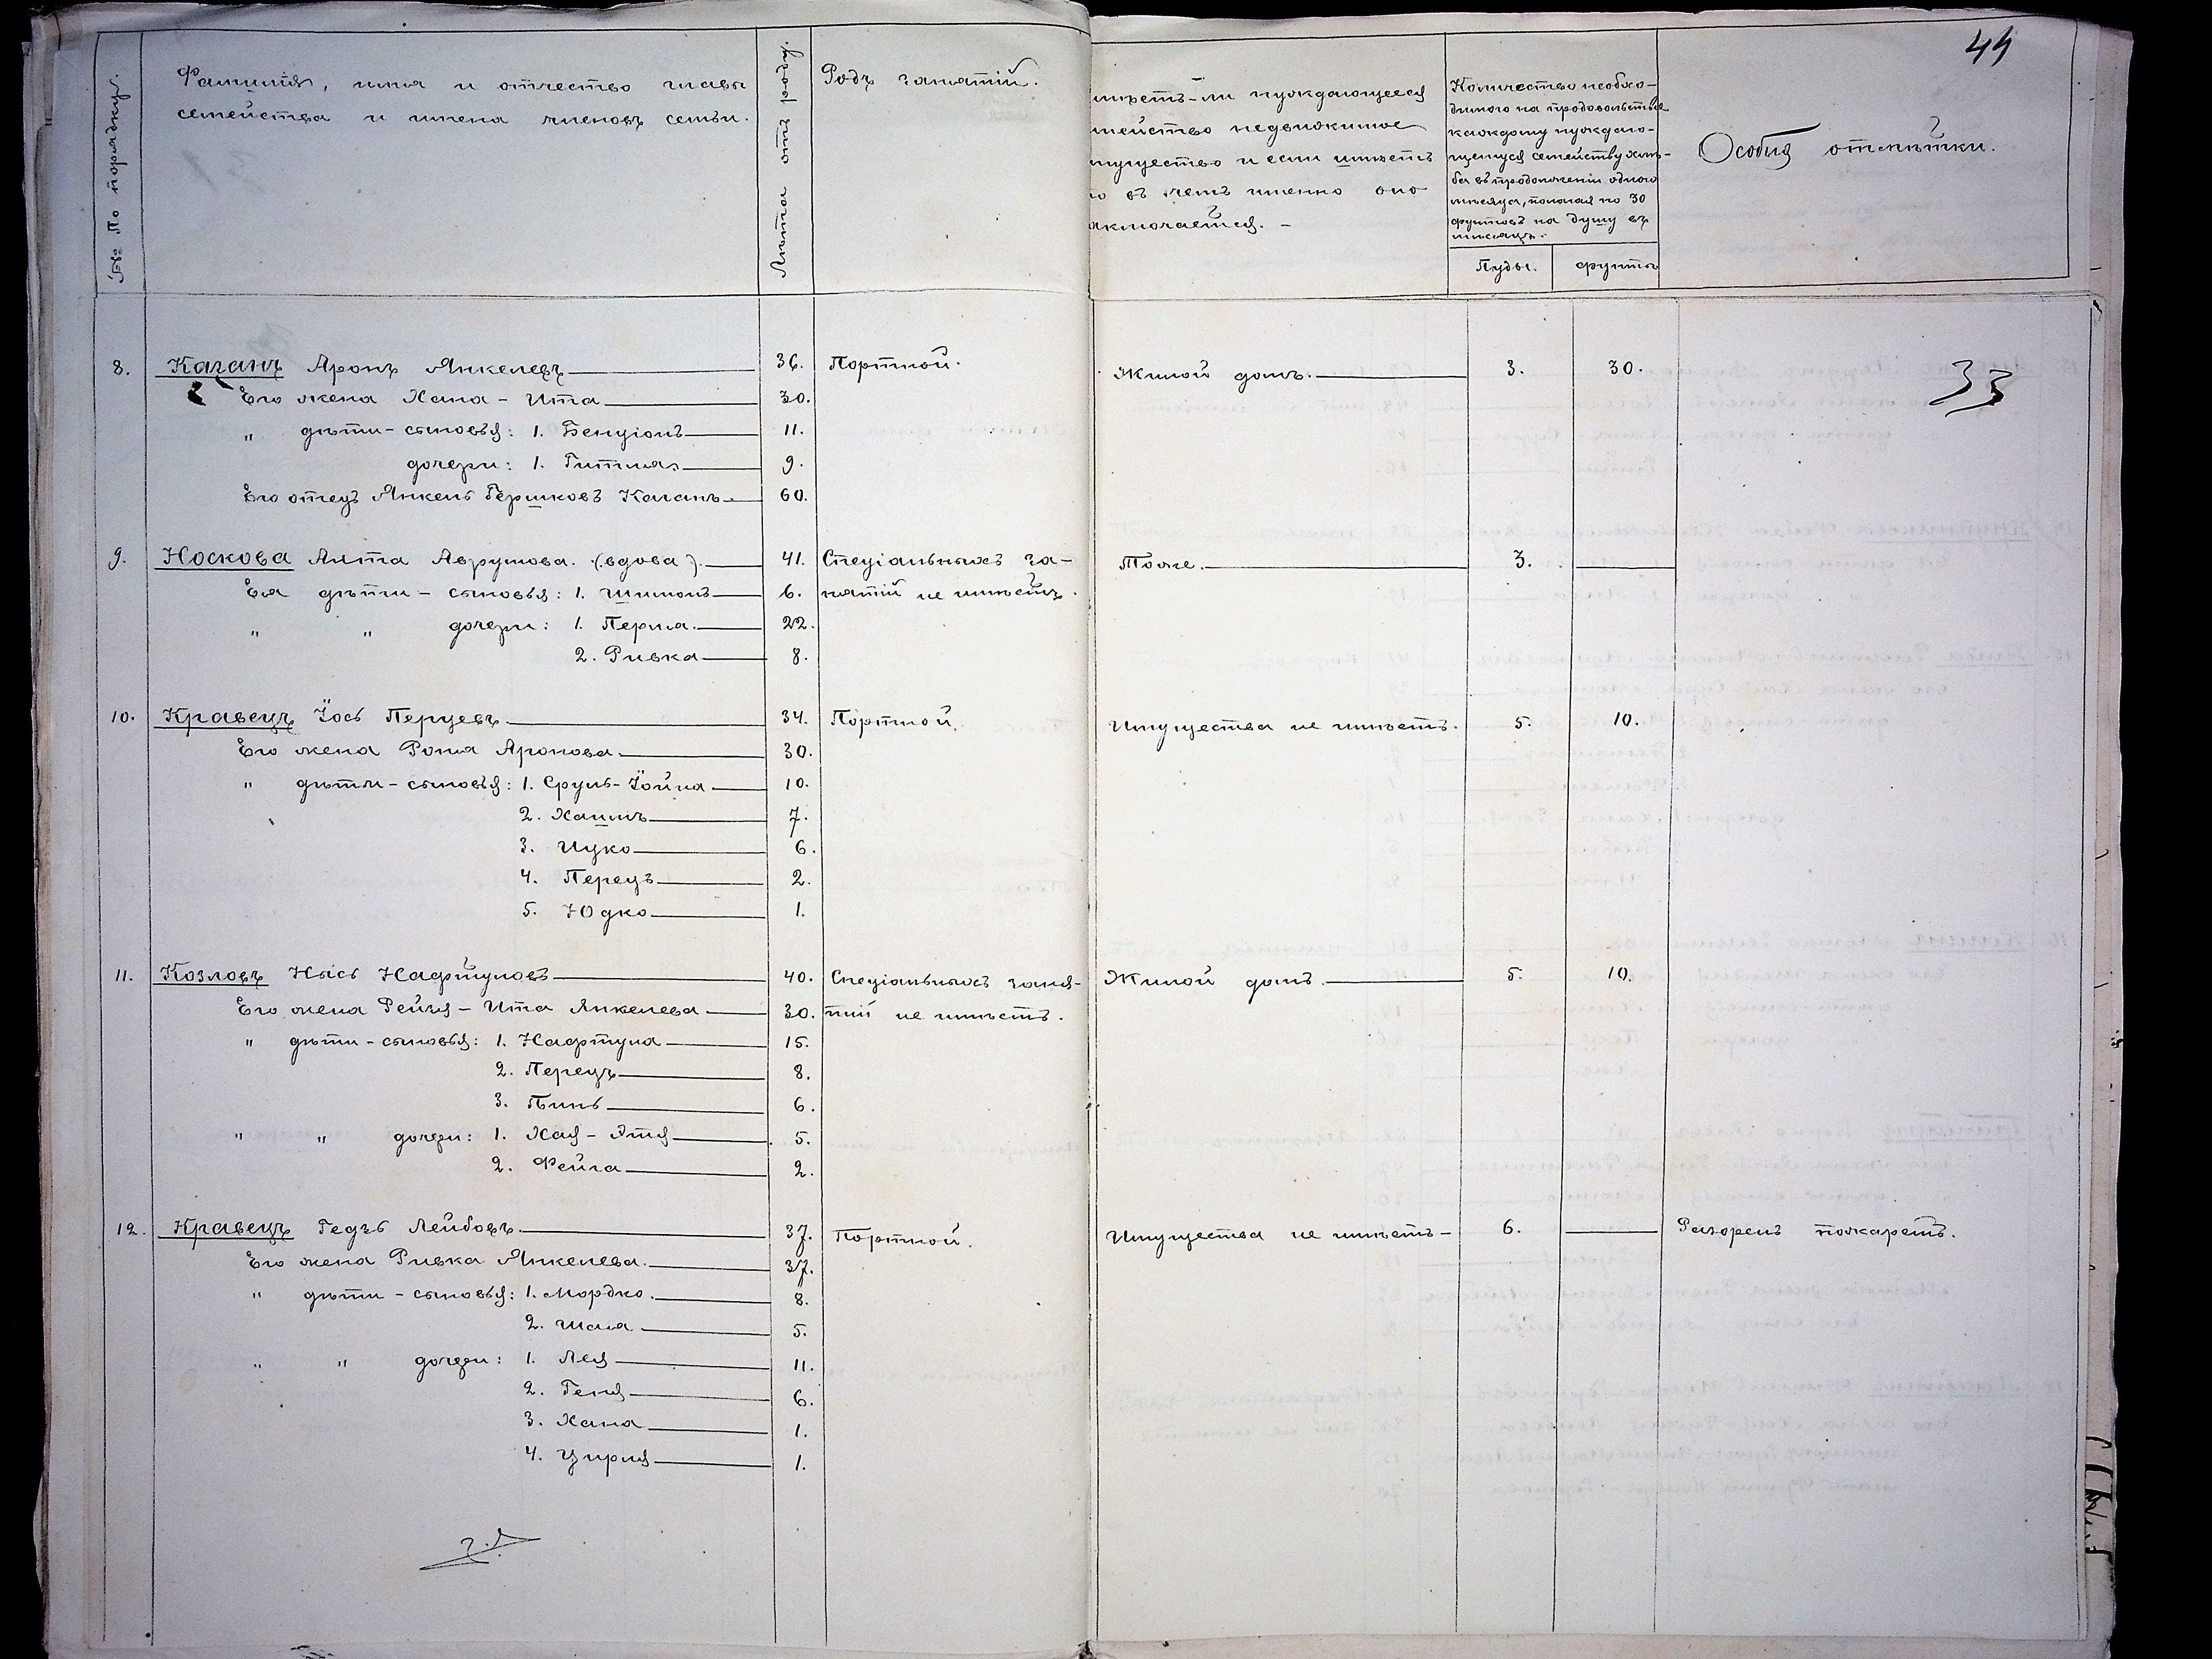 44
№№ По порядку.
Фамилія, имя и отчество главы
семейства и имена членовъ семьи.
Лѣта отъ роду.
Родъ занятій.
имѣетъ-ли нуждающееся
мейство недвижимое
мущество и если имѣетъ
то въ чемъ именно оно
аключается. -
Количество необхо-
димаго на продовольствіе
каждому нуждаю-
щемуся семейству хлѣ-
ба въ продолженіи одного
мѣсяца, полагая по 30
фунтовъ на душу въ
мѣсяцъ.
Пуды. фунты
Особыя отмѣтки.
8. Каганъ Аронъ Янкелевъ 36. Портной. Жилой домъ. 3. 30.
33
Его жена Хана - Ита 30.
" дѣти - сыновья: 1. Бенціонъ 11.
дочери: 1. Гитля 9.
Его отецъ Янкель Гершковъ Каганъ 60.
9. Носкова Алта Аврумова. (вдова). 41. Спеціальныхъ за- Тоже. 3.
Ея дѣти - сыновья: 1. Шимонъ 6. нятій не имѣетъ.
" " дочери: 1. Перла. 22.
2. Ривка 8.
10. Кравецъ Іось Перцевъ. 34. Портной. Имущества не имѣетъ. 5. 10.
Его жена Роня Аронова 30.
" дѣти - сыновья: 1. Сруль-Іойна 10.
2. Хаимъ 7.
3. Ицко 6.
4. Перецъ 2.
5. Юдко 1.
11. Козловъ Нысь Нафтуловъ 40. Спеціальныхъ заня- Жилой домъ. 5. 10.
Его жена Рейзя - Ита Янкелева 30. тій не имѣетъ.
" дѣти - сыновья: 1. Нафтула 15.
2. Перецъ 8.
3. Пинь 6.
" " дочери: 1. Хая - Этя 5.
2. Фейга 2.
12. Кравецъ Гедзь Лейбовъ. 37. Портной. Имущества не имѣетъ - 6. Разоренъ пожаромъ.
Его жена Ривка Янкелева. 37.
" дѣти - сыновья: 1. Мордко. 8.
2. Шая. 5.
" " дочери: 1. Лея 11.
2. Геня 6.
3. Хана 1.
4. Цирля 1.